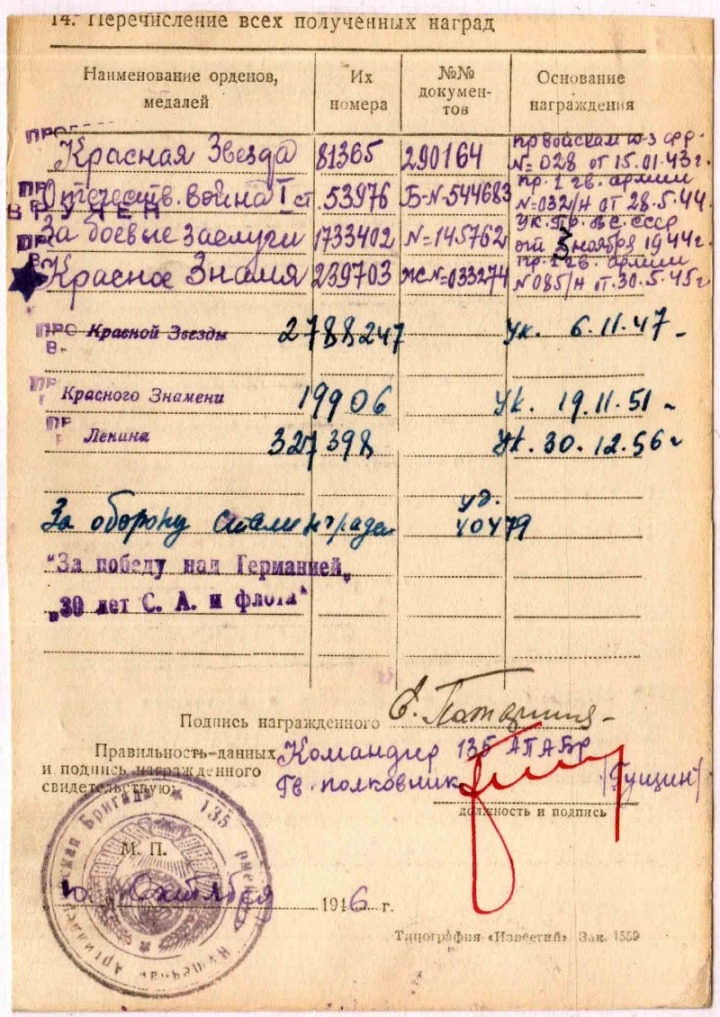 14. Перечисление всех полученных наград
Наименование орденов, медалей
Их номера
№№ документов
Основание награждения
Красная Звезда 81365 290164 пр войскам ю-з фр. N=028 от 15.01.43г.
Отечеств. война I ст. 53976 Б-N=544683 пр. 1 гв. армии N=032/н от 28.5.44.
ВРУЧЕН
За боевые заслуги 1733402 N=145762 Ук. Пр. ВС. СССР от 3 ноября 1944г.
Красное Знамя 239703 ЖN=033274 пр. 1 гв. армии N085/н от. 30.5.45г
Красной Звезды 2788247 Ук. 6.11.47
Красного Знамени 19906 Ук. 19.11.51
Ленина 327398 Ук. 30.12.56г
За оборону Сталинграда уд. 40479
"За победу над Германией"
"30 лет С. А. и флота"
Подпись награжденного
Правильность данных Командир 135 АПАБр
и подпись награжденного Гв. полковник /Гущин/
свидетельствую:
должность и подпись
М. П.
10 Октября 1946 г.
Типография «Известий» Зак. 1559